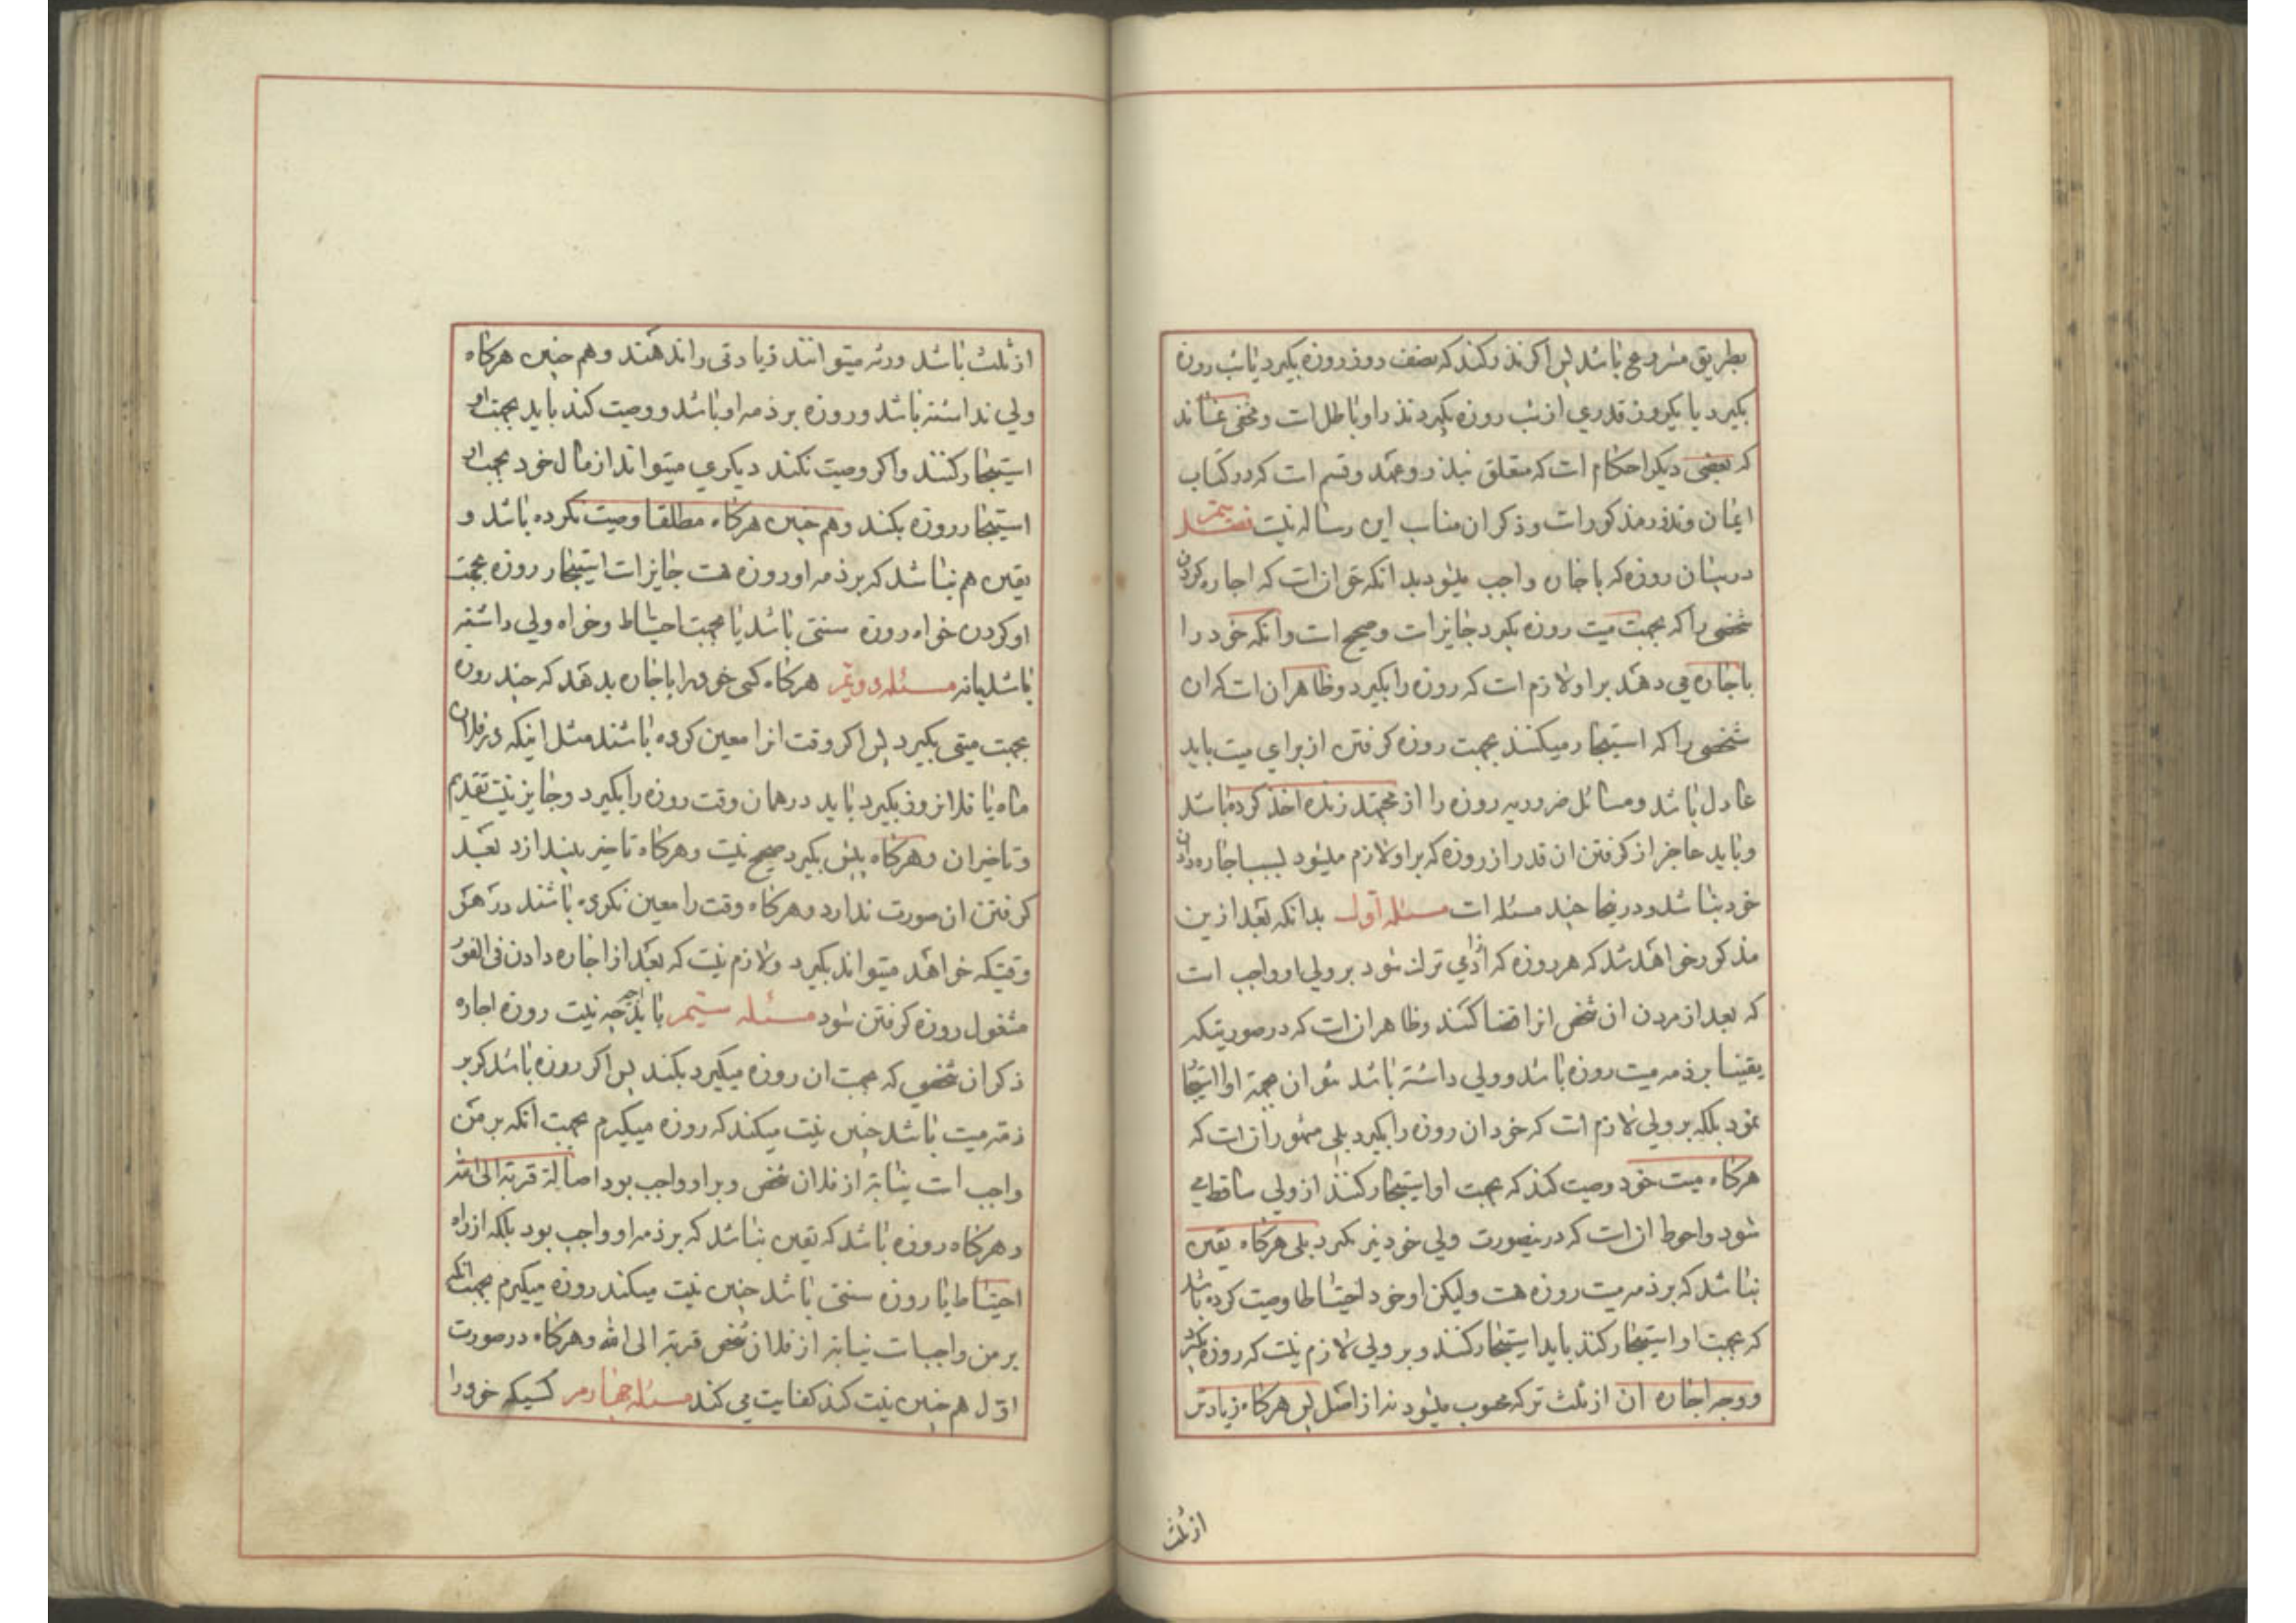 بطریق مشروع باشد پس اکر نذر کند که نصف روز روزه بکیرد یا شب روزه
بکیرد یا یکروز قدری از شب روزه بکیرد نذر او باطل است و مخفی نماند
که بعضی دیکر احکام است که متعلق بنذر و عهد و قسم است که در کتاب
ایمان و نذر مذکور است و ذکر ان مناسب این رساله نیست فصل
در بیان روزه که باجاره واجب میشود بدانکه جواز است که اجاره کردن
شخصی را که بجهت میت روزه بکیرد جایز است و صحیح است و انکه خود را
باجاره می دهد بر او لازم است که روزه را بکیرد و ظاهر ان است که ان
شخصی را که استیجار میکنند بجهت روزه کرفتن از برای میت باید
عادل باشد و مسائل ضروریه روزه را از مجتهد زنده اخذ کرده باشد
و باید عاجز از کرفتن ان قدر از روزه که بر او لازم میشود بسبب اجاره دادن
خود نباشد و درینجا چند مسئله است مسئله اول بدانکه بعد ازین
مذکور خواهد شد که هر روزه که از ادمی ترک شود بر ولی او واجب است
که بعد از مردن ان شخص انرا قضا کنند و ظاهر ان است که در صورتیکه
یقینا بر ذمه میت روزه باشد و ولی داشته باشد نتوان بجهة او استیجار
نمود بلکه بر ولی لازم است که خود ان روزه را بکیرد بلی مشهور ان است که
هرکاه میت خود وصیت کند که بجهت او استیجار کنند از ولی ساقط می
شود و احوط ان است که درینصورت ولی خود نیز بکیرد بلی هرکاه یقین
نباشد که بر ذمه میت روزه هست ولیکن او خود احتیاطا وصیت کرده باشد
که بجهت او استیجار کنند باید استیجار کنند و بر ولی لازم نیست که روزه بکیرد
و وجه اجاره ان از ثلث ترکه محسوب میشود نه از اصل پس هرکاه زیادتر
از ثلث
از ثلث باشد ورثه میتوانند زیادتی را ندهند و هم چنین هرکاه
ولی نداشته باشد و روزه بر ذمه او باشد و وصیت کند باید بجهت او
استیجار کنند و اکر وصیت نکند دیکری میتواند از مال خود بجهت او
استیجار روزه بکند و هم چنین هرکاه مطلقا وصیت نکرده باشد و
یقین هم نباشد که بر ذمه او روزه هست جایز است استیجار روزه بجهت
او کردن خواه روزه سنتی باشد یا بجهت احتیاط و خواه ولی داشته
باشد یا نه مسئله دویم هرکاه کسی خود را باجاره بدهد که چند روزه
بجهت میتی بکیرد پس اکر وقت انرا معین کرده باشند مثل اینکه در فلان
ماه یا فلانروز بکیرد باید در همان وقت روزه را بکیرد و جایز نیست تقدیم
و تاخیر ان و هرکاه پیش بکیرد صحیح نیست و هرکاه تاخیر بیندازد بعد
کرفتن ان صورت ندارد و هرکاه وقت را معین نکرده باشند در هر
وقتیکه خواهد میتواند بکیرد و لازم نیست که بعد از اجاره دادن فی الفور
مشغول روزه کرفتن شود مسئله سیم باید اجیر نیت روزه اجاره
ذکر ان شخصی که بجهت ان روزه میکیرد بکند پس اکر روزه باشد که بر
ذمه میت باشد چنین نیت میکند که روزه میکیرم بجهت انکه بر من
واجب است نیابة از فلان شخص و بر او واجب بود اصالة قربة الی الله
و هرکاه روزه باشد که یقین نباشد که بر ذمه او واجب بود بلکه از راه
احتیاط یا روزه سنتی باشد چنین نیت میکند روزه میکیرم بجهت انکه
بر من واجبست نیابة از فلان شخص قربة الی الله و هرکاه در صورت
اول هم چنین نیت کند کفایت می کند مسئله چهارم کسیکه خود را